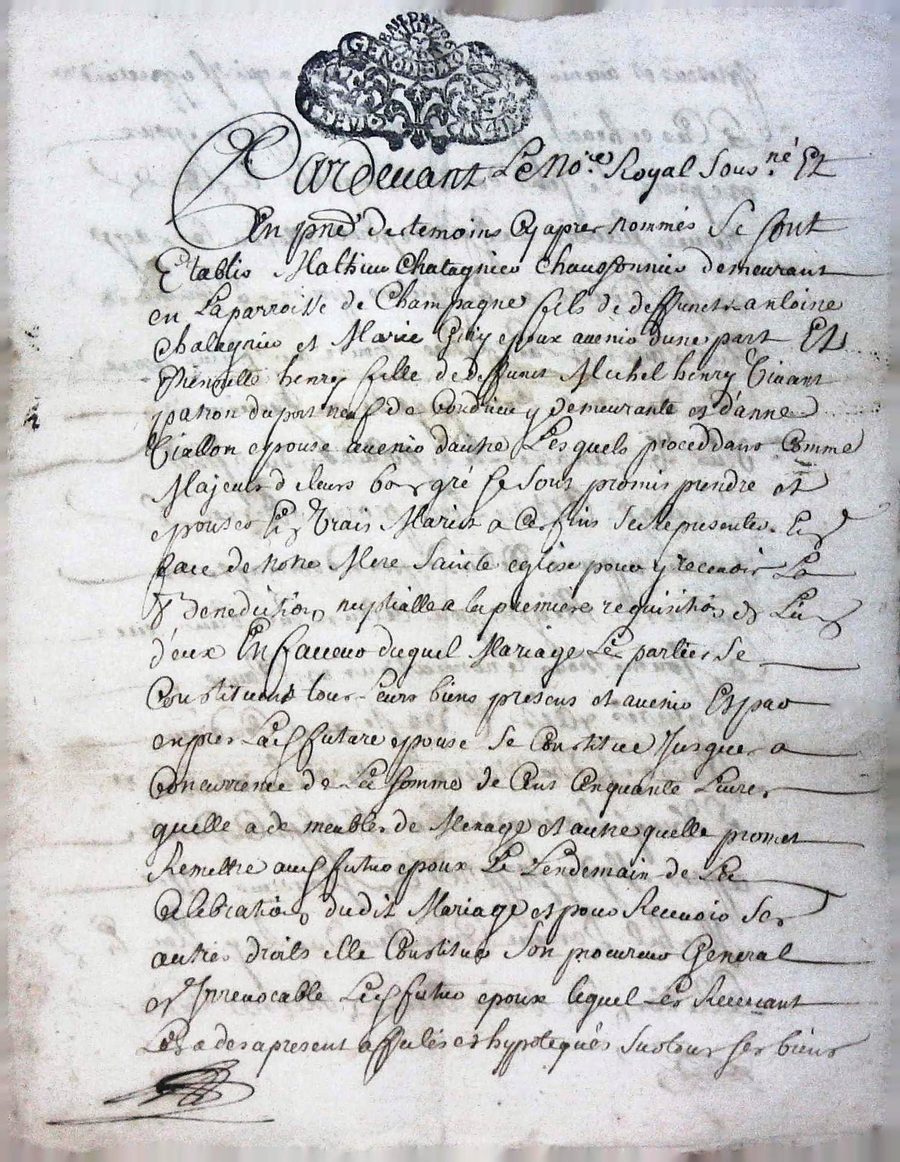 GEN DE LYON
Pardevant Le No.re Royal Sous.né Et
En pnce des temoins Cy apres nommés Se sont
Etablis Mathieu Chatagnier Chaussonnier demeurant
en La parroisse de Champagne fils de deffunct antoine
Chatagnier et Marie Guy epoux avenir dune part Et
henry fille de deffunct Michel henry vivant
patron du port neuf de Condrieu y demeurante et d'anne
Viallon epouse avenir dautre Lesquels proceddans Comme
Majeurs de leurs bon gré se sont promis prendre et
epouser En Vrais Maries a Ces fins se represanter En
face de notre Mere Sainte eglise pour y recevoir La
benediction nuptialle a la premiere requisition de Lun
d'eux En faveur duquel Mariage Les parties Se
Constituent tous leurs biens presens et avenir Et par
expres Lad future epouse Se Constitue Jusques a
Concurrence de La somme de Cent Cinquante Livres
quelle a de meubles de Menage et autre quelle promet
Remettre aud futur epoux Le Lendemain de La
Celebration dudit Mariage et pour Recevoir Ses
autres droits elle Constitue Son procureur General
et Irrevocable Led futur epoux lequel Les Recevant
Les a des apresent assurés et hypotequés sur tous ses biens